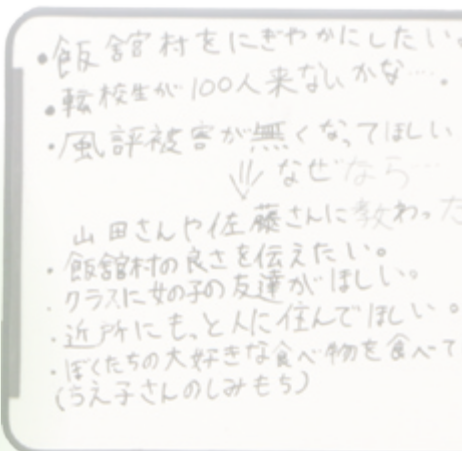 ・飯舘村をにぎやかにしたい。
・転校生が100人来ないかな…。
・風評被害が無くなってほしい
⇓なぜなら…
山田さんや佐藤さんに教わった
・飯舘村の良さを伝えたい。
・クラスに女の子の友達がほしい。
・近所にもっと人に住んでほしい。
・ぼくたちの大好きな食べ物を食べて
(うえ子さんのしみもち)